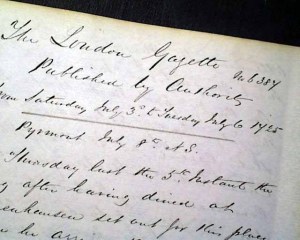 The London Gazette No 6384
Published by Authority
from Saturday July 3d to Tuesday July 6 1725
Pyrmont July 8th N.S.
Thursday last the 5th Instant the
after having dined at
set out for this place
he